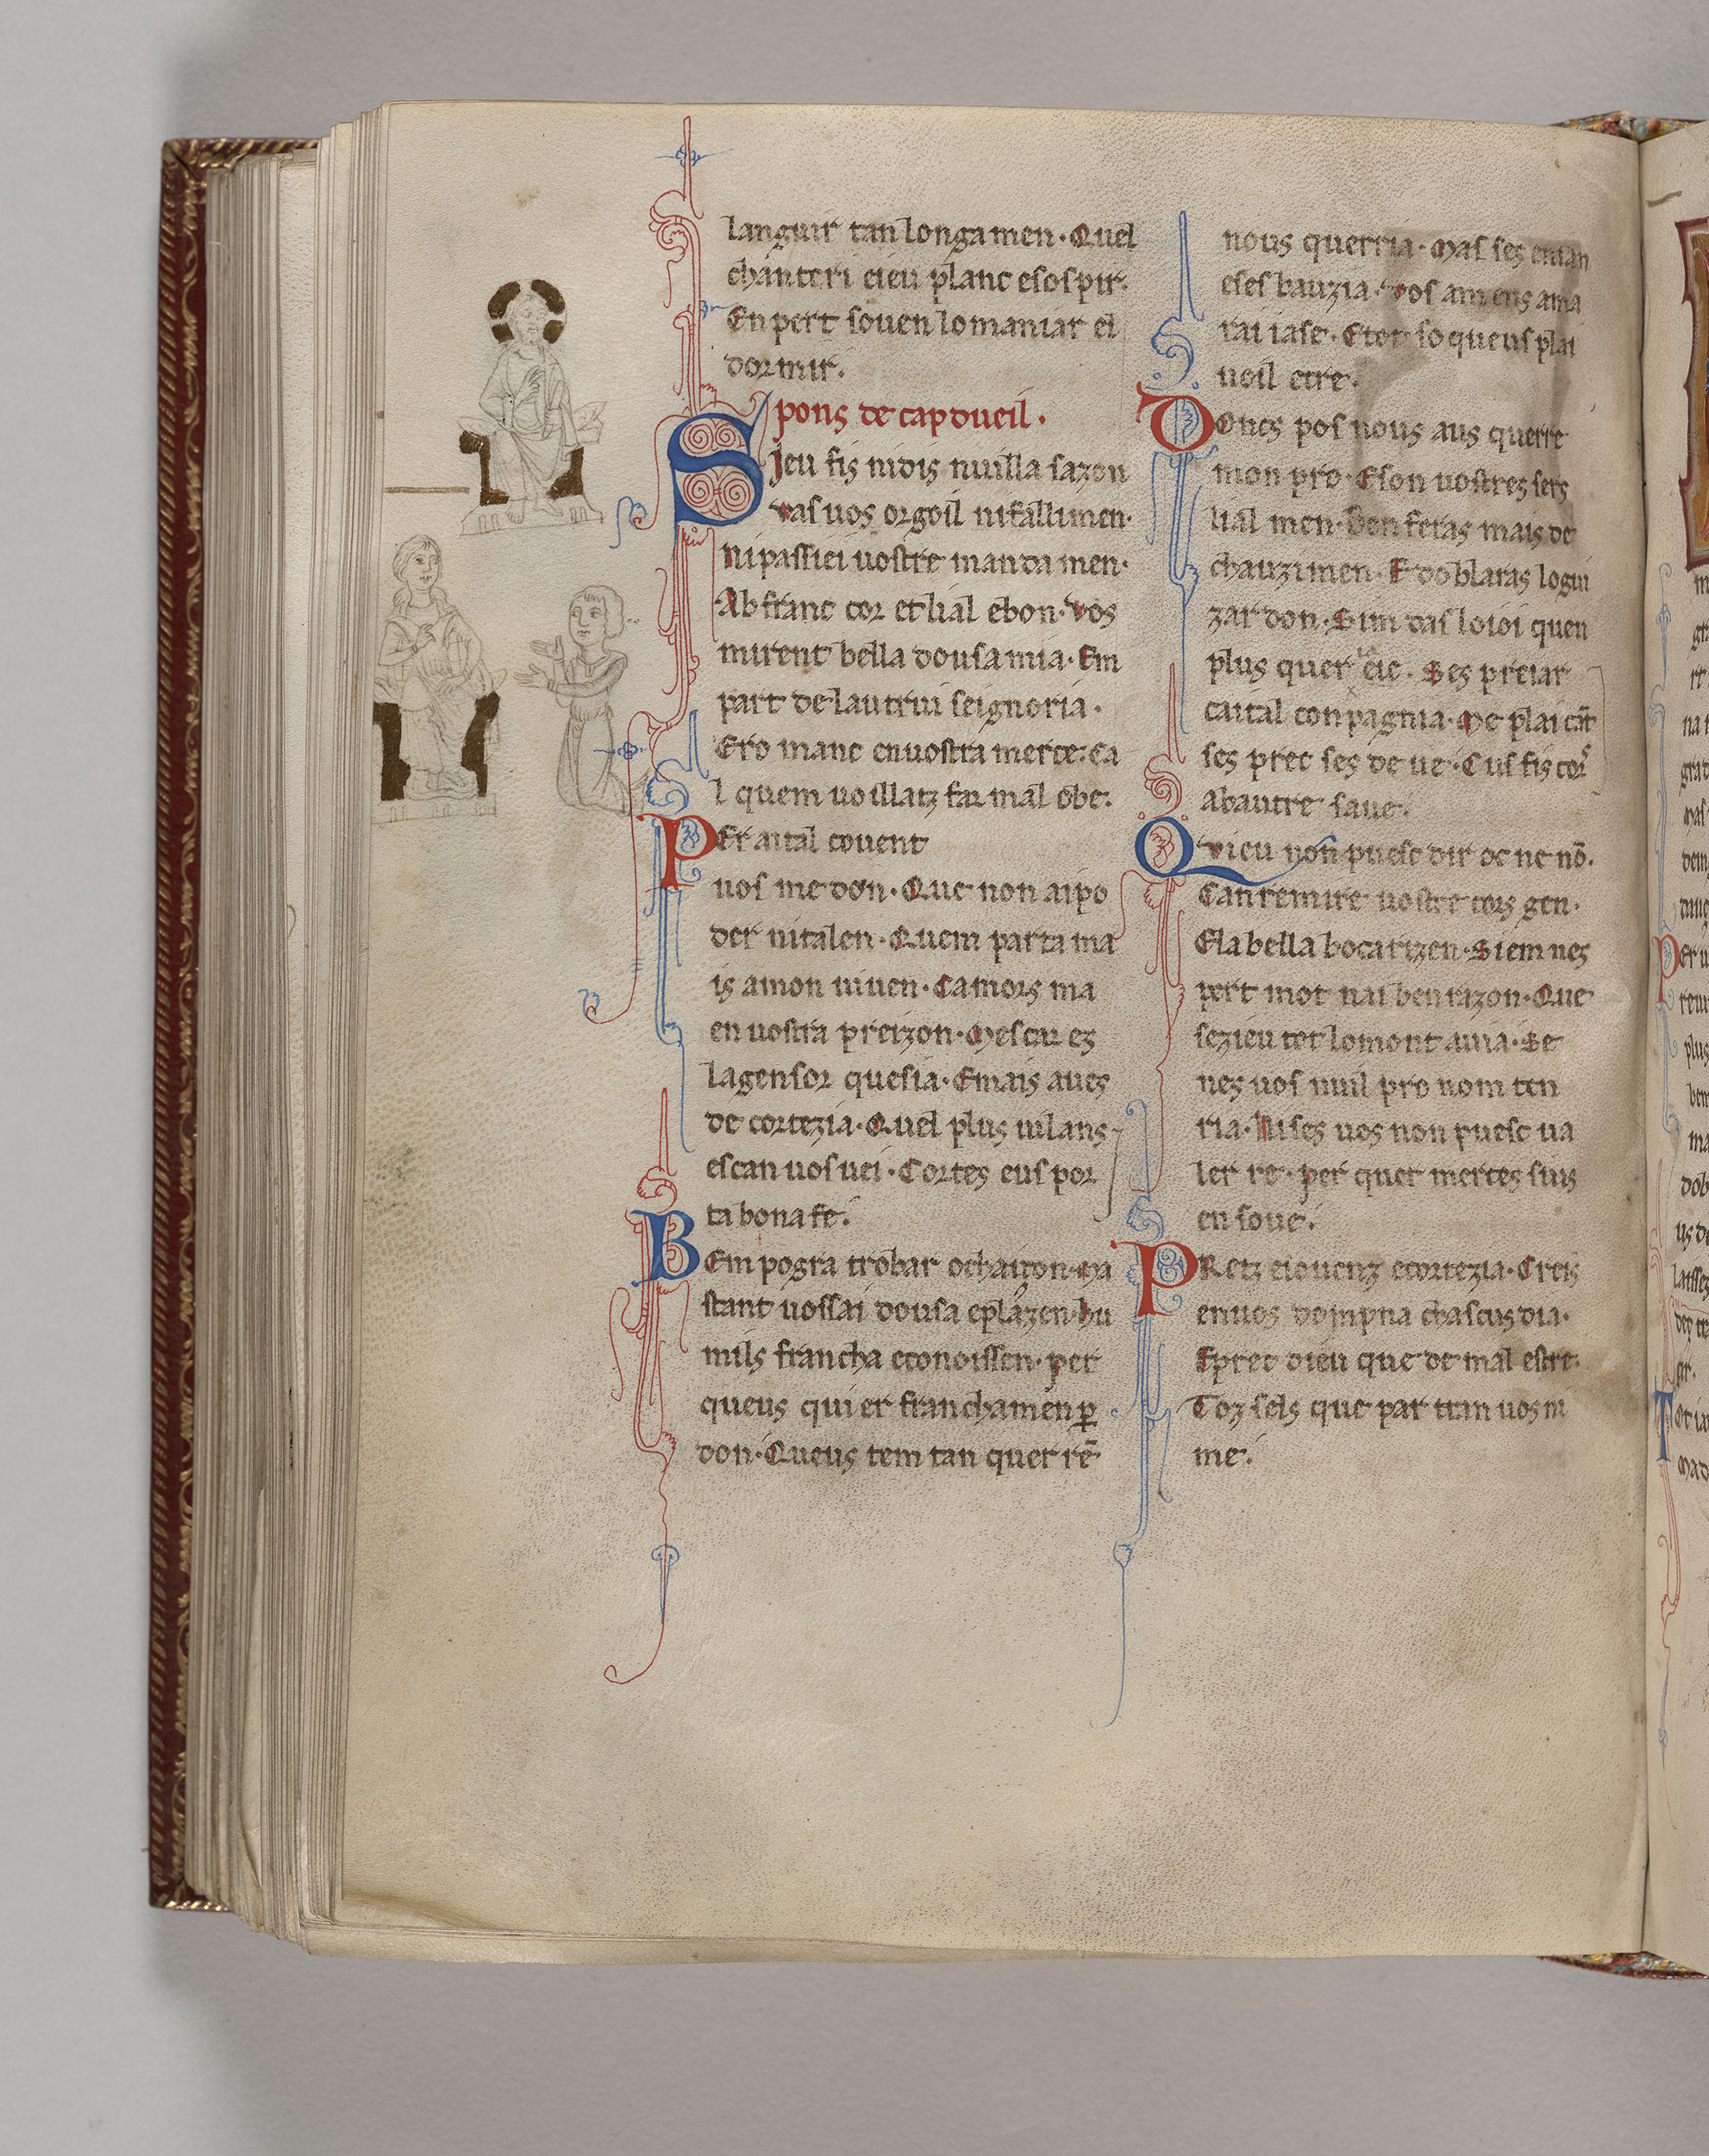 languir tan longa men. Quel
chanteri eieu planc esospir.
En pert souen lo maniar el
dormir.
pons de capdueil.
Sieu fis nidis nuilla sazon
vas uos orgoil ni fallimen.
ni passiei uostre manda men.
Ab franc cor et lial ebon. Vos
mirent bella dousa mia. Em
part de lautrui seignoria.
Ero manc en uostra merce. ea
l quem uoillatz far mal obe.
PEr aital couent
uos me don. Que non ai po
der ni talen. Quem parta ma
is a mon uiuen. Camors ma
en uostra preizon. Mescau ez
la gensor que sia. E mais aues
de cortezia. Quel plus uilans
es can uos uei. Cortes eus por
ta bona fe.
BEm pogra trobar ochaizon. ma
stant uos sai dousa eplazen. hu
mils francha econoissen. per
queus qui er franchamen per
don. Queus tem tan quer re
nous querria. Mas ses enian
eses bauzia. Vos am ens ama
rai iase. Etot so queus plai
uoil etre.
DOncs pos nous aus querre
mon pro. E son uostres sers
lial men. Ben feras mais de
chauzimen. E doblaras logui
zardon. Sim das loioi quen
plus quer eie. Ses preiar
caital conpagnia. Me plai cant
ses prec ses de ue. Cus fis cors
abautre saue.
Qvieu non puesc dir oc ne no.
Can remire uostre cors gen.
E la bella boca rizen. Siem nes
pert mot nai ben razon. Que
sezieu tot lo mont auia. Se
nes uos nuil pro nom ten
ria. Ni ses uos non puesc ua
ler re. per quer merces suis
en soue.
PRetz eiouenz ecortezia. Creis
en uos dompna chascus dia.
E prec dieu que de mal estre.
Toz sels que par tem uos ni
me.